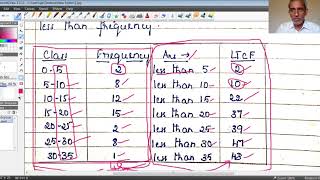 less than frequency.
Class Frequency Ans → LTCF
0-5 2 less than 5 2
5-10 8 less than 10 10
10-15 12 less than 15 22
15-20 15 less than 20 37
20-25 2 less than 25 39
25-30 8 less than 30 47
30-35 1 less than 35 43